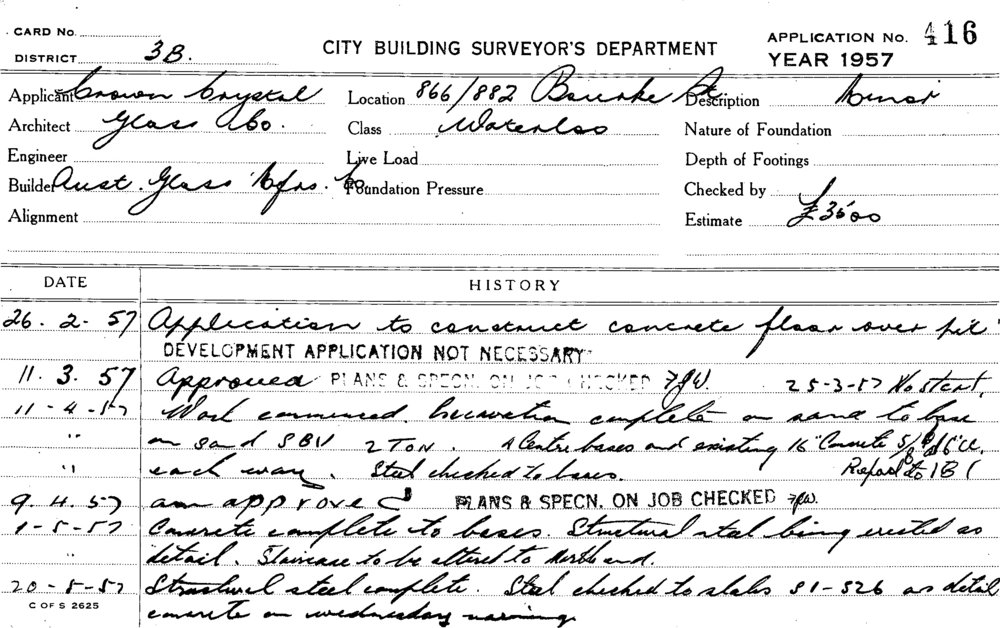 CARD No.
DISTRICT 3B.
CITY BUILDING SURVEYOR'S DEPARTMENT
APPLICATION No. 416
YEAR 1957
Applicant Crown Crystal
Location 866/882 Bourke St
Description Minor
Architect Glass
Class Waterloo
Nature of Foundation
Engineer
Live Load
Depth of Footings
Builder Aust. Glass Mfrs. Co
Foundation Pressure
Checked by
Alignment
Estimate £3500
DATE HISTORY
26. 2. 57 Application to construct concrete floor over pit
DEVELOPMENT APPLICATION NOT NECESSARY
11. 3. 57 Approved PLANS & SPECN. ON JOB CHECKED 25-3-57 No start.
11-4-57 Work commenced. Excavation complete on sand to base
" on sand SBV 2 TON. Centre bases and existing 16" Concrete
" each way. Steel checked to bases. Report to
9. 4. 57 am approved PLANS & SPECN. ON JOB CHECKED
1-5-57 Concrete complete to bases. Structural steel being erected as
" detail. Staircase to be altered to North end.
20-5-57 Structural steel complete. Steel checked to slabs S1-S26 as detail
C OF S 2625
concrete on wednesday morning